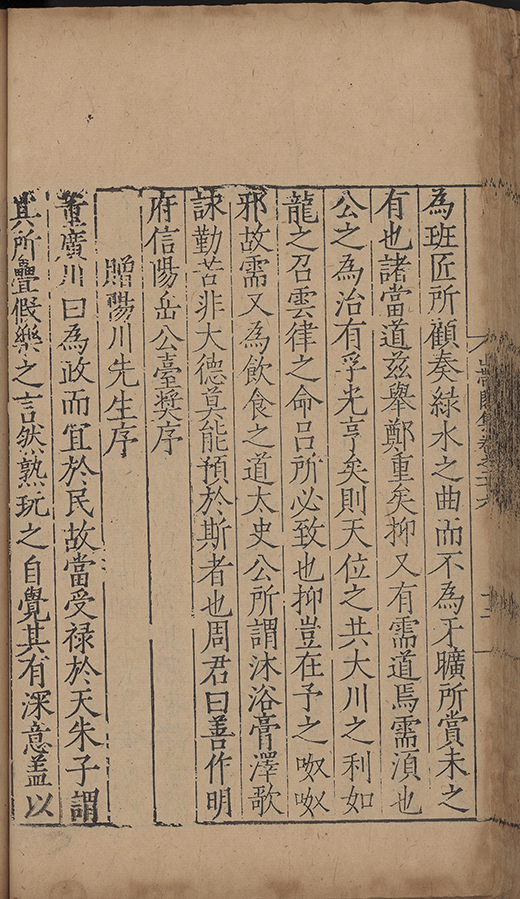 為班匠所顧奏綠水之曲而不為牙曠所賞未之
有也諸當道兹舉鄭重矣抑又有需道焉需湏也
公之為治有孚光亨矣則天位之共大川之利如
龍之召雲律之命呂所必致也抑豈在予之呶呶
邪故需又為飲食之道太史公所謂沐浴膏澤歌
詠勤苦非大德莫能預於斯者也周君曰善作明
府信陽岳公臺奬序
贈陽川先生序
董廣川曰為政而宜於民故當受禄於天朱子謂
其所疊假樂之言然熟玩之自覺其有深意盖以